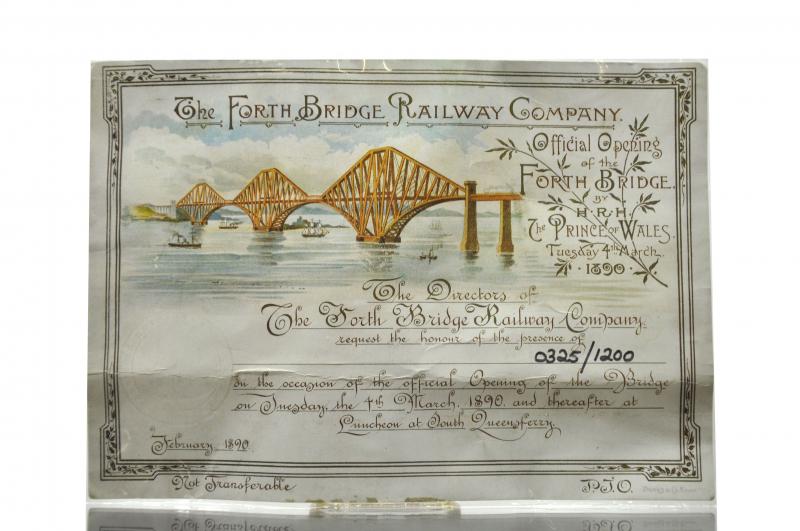 The Forth Bridge Railway Company.
Official Opening
of the
Forth Bridge.
BY
H.R.H.
The Prince of Wales.
Tuesday 4th March
1890.
The Directors of
The Forth Bridge Railway Company,
request the honour of the presence of
0325/1200
On the occasion of the official Opening of the Bridge
on Tuesday, the 4th March, 1890, and thereafter at
Luncheon at South Queensferry.
February 1890.
Not Transferable
P.T.O.